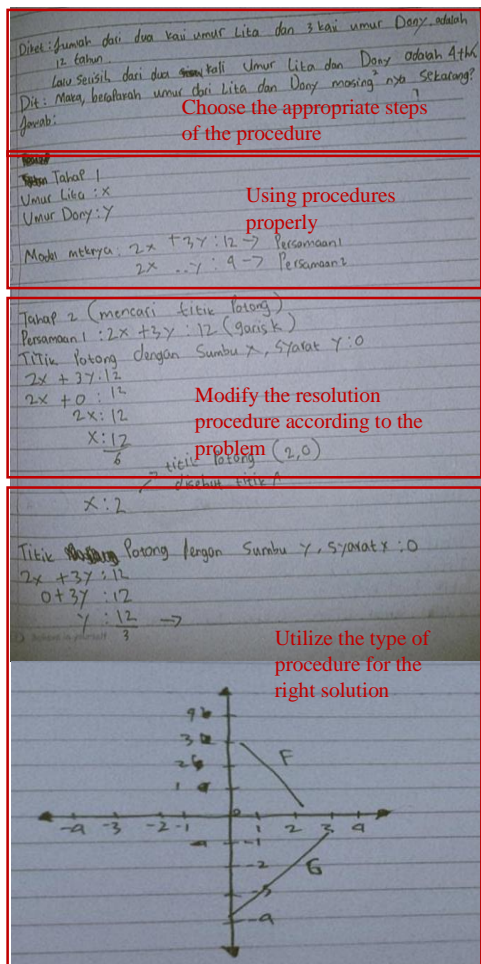 Diket: Jumlah dari dua kali umur Lita dan 3 kali umur Dony adalah
12 tahun.
Lalu selisih dari dua kali Umur Lita dan Dony adalah 4 thn
Dit: Maka, berapakah umur dari Lita dan Dony masing² nya sekarang?
Jawab:
Choose the appropriate steps
of the procedure
Tahap 1
Umur Lita : x
Umur Dony : y
Using procedures
properly
Model mtknya: 2x + 3y : 12 -> Persamaan 1
2x - y : 4 -> Persamaan 2
Tahap 2 (mencari titik Potong)
Persamaan 1 : 2x + 3y : 12 (garis k)
Titik Potong dengan Sumbu x, syarat y : 0
2x + 3y : 12
2x + 0 : 12
2x : 12
x : 12
6
Modify the resolution
procedure according to the
problem
titik Potong (2,0)
disebut titik A
x : 2
Titik Potong dengan Sumbu y, syarat x : 0
2x + 3y : 12
0 + 3y : 12
y : 12 ->
3
Utilize the type of
procedure for the
right solution
4
3
2
1
F
-4 -3 -2 -1 0 1 2 3 4
-1
-2
G
-3
-4